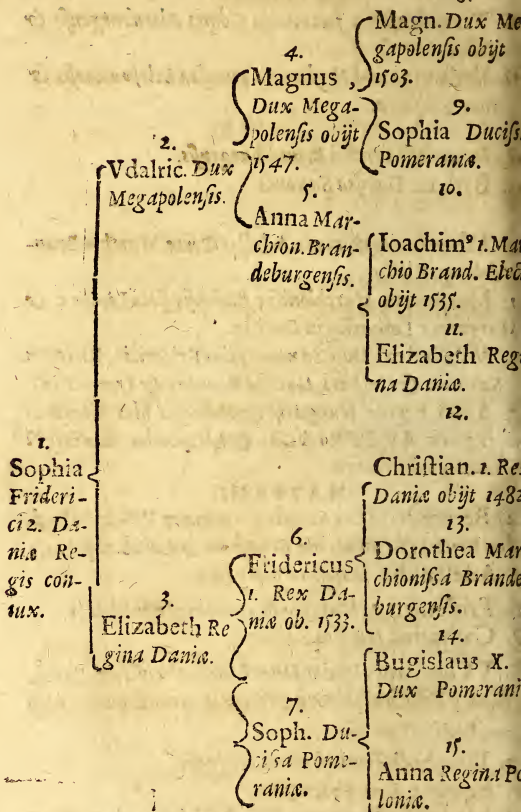 1.
Sophia
Frideri-
ci 2. Da-
niæ Re-
gis con-
iux.
2.
Vdalric. Dux
Megapolensis.
3.
Elizabeth Re
gina Daniæ.
4.
Magnus,
Dux Mega-
polensis obijt
1547.
5.
Anna Mar-
chion. Bran-
deburgensis.
6.
Fridericus
1. Rex Da-
niæ ob. 1533.
7.
Soph. Du-
cissa Pome-
raniæ.
Magn. Dux Me
gapolensis obijt
1503.
9.
Sophia Duciss
Pomeraniæ.
10.
Ioachimꝰ 1. Mar
chio Brand. Elec
obijt 1535.
11.
Elizabeth Regi
na Daniæ.
12.
Christian. 1. Re
Daniæ obijt 1482
13.
Dorothea Mar
chionissa Brande
burgensis.
14.
Bugislaus X.
Dux Pomerani
15.
Anna Regina Po
loniæ.